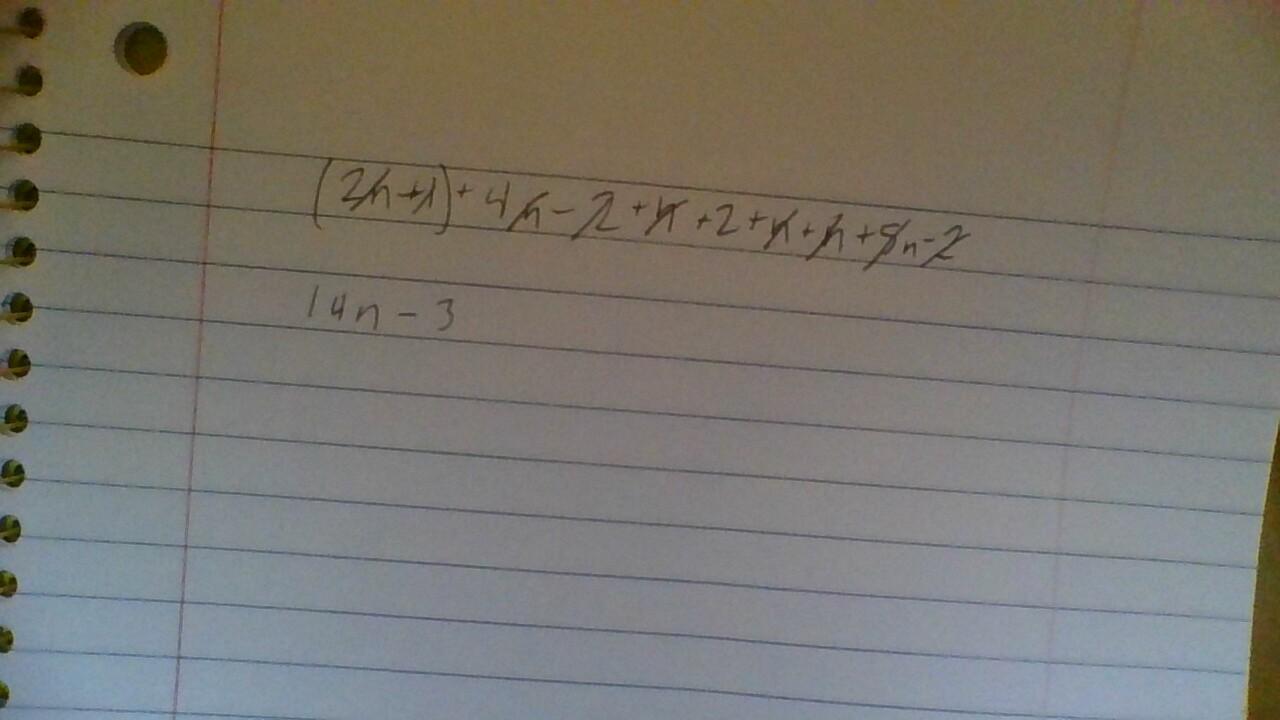 (2n+1)+4n-2+n+2+n+n+5n-2
14n-3